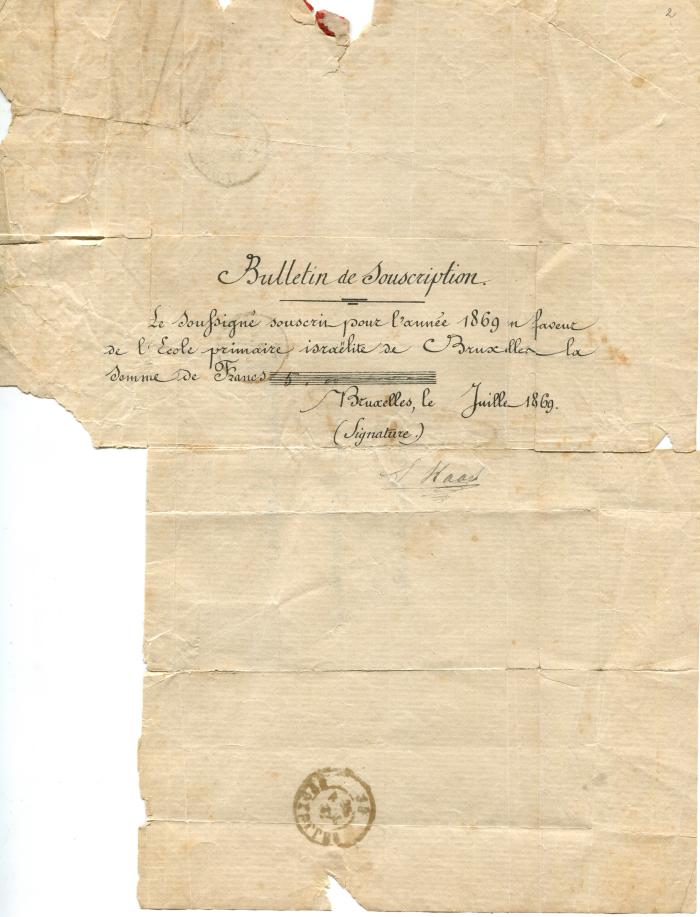 2
Bulletin de Souscription.
Le soussigné souscrit pour l'année 1869 en faveur
de l'Ecole primaire israëlite de Bruxelles la
somme de Francs 5,
Bruxelles, le Juillet 1869.
(Signature.)